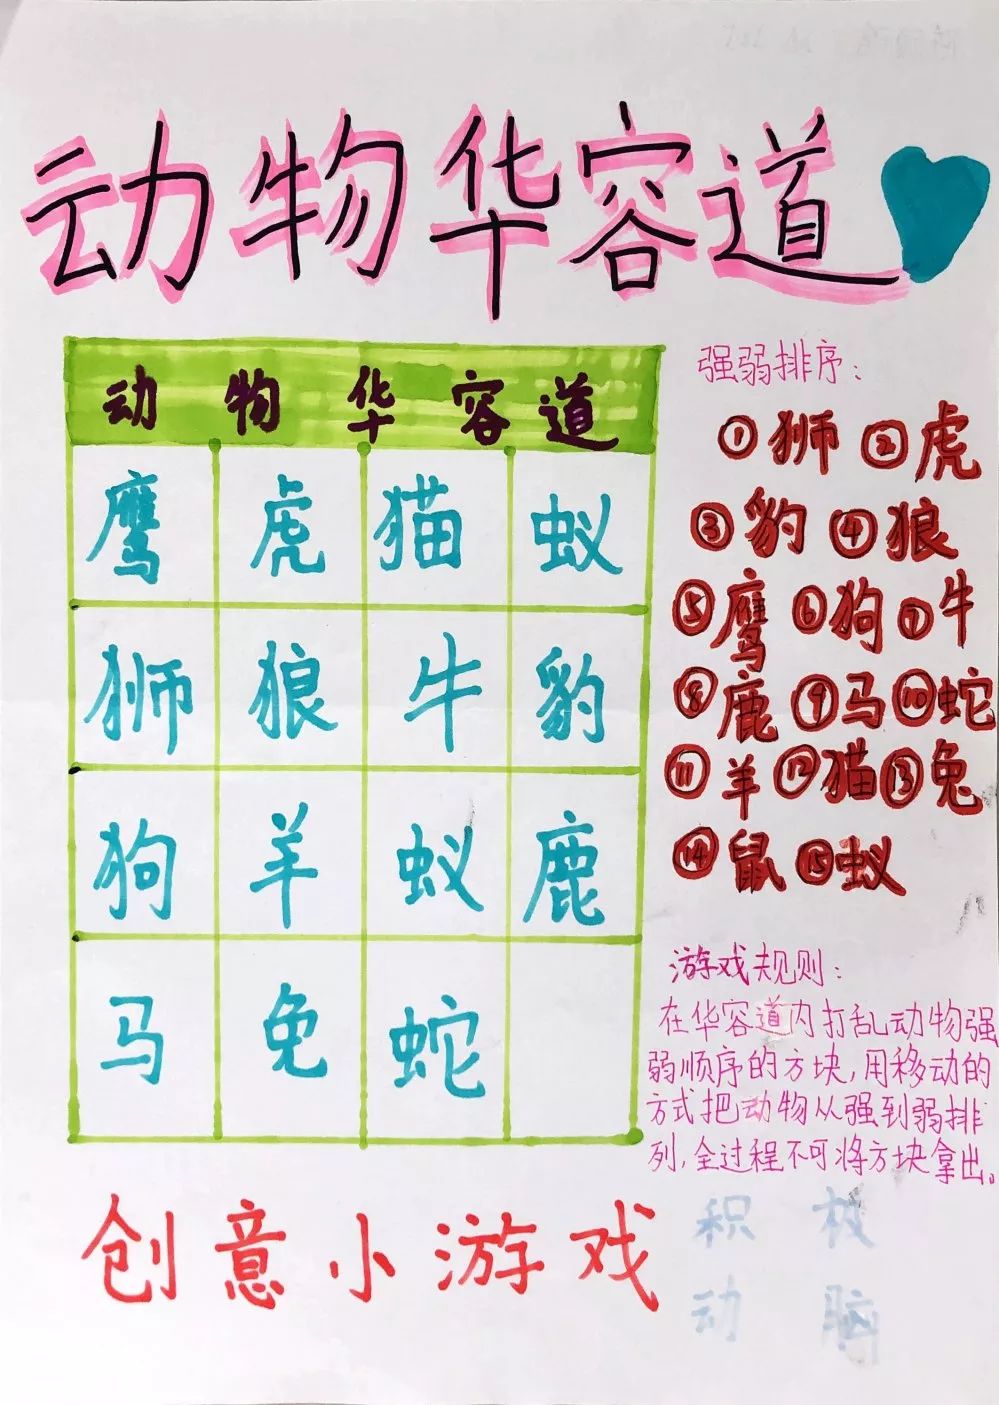 动物华容道
动物华容道
鹰 虎 猫 蚁
狮 狼 牛 豹
狗 羊 蚁 鹿
马 兔 蛇
强弱排序：
①狮 ②虎
③豹 ④狼
⑤鹰 ⑥狗 ⑦牛
⑧鹿 ⑨马 ⑩蛇
⑪羊 ⑫猫 ⑬兔
⑭鼠 ⑮蚁
游戏规则：
在华容道内打乱动物强
弱顺序的方块，用移动的
方式把动物从强到弱排
列，全过程不可将方块拿出。
创意小游戏
积极
动脑